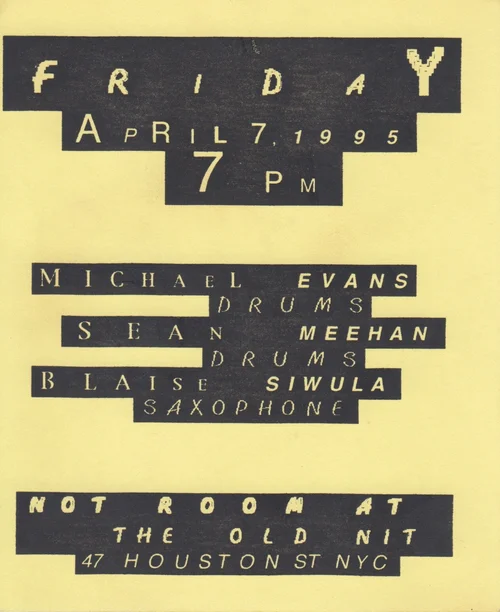 FRIDAY
APRIL 7, 1995
7 PM
MICHAEL EVANS
DRUMS
SEAN MEEHAN
DRUMS
BLAISE SIWULA
SAXOPHONE
NOT ROOM AT
THE OLD NIT
47 HOUSTON ST NYC